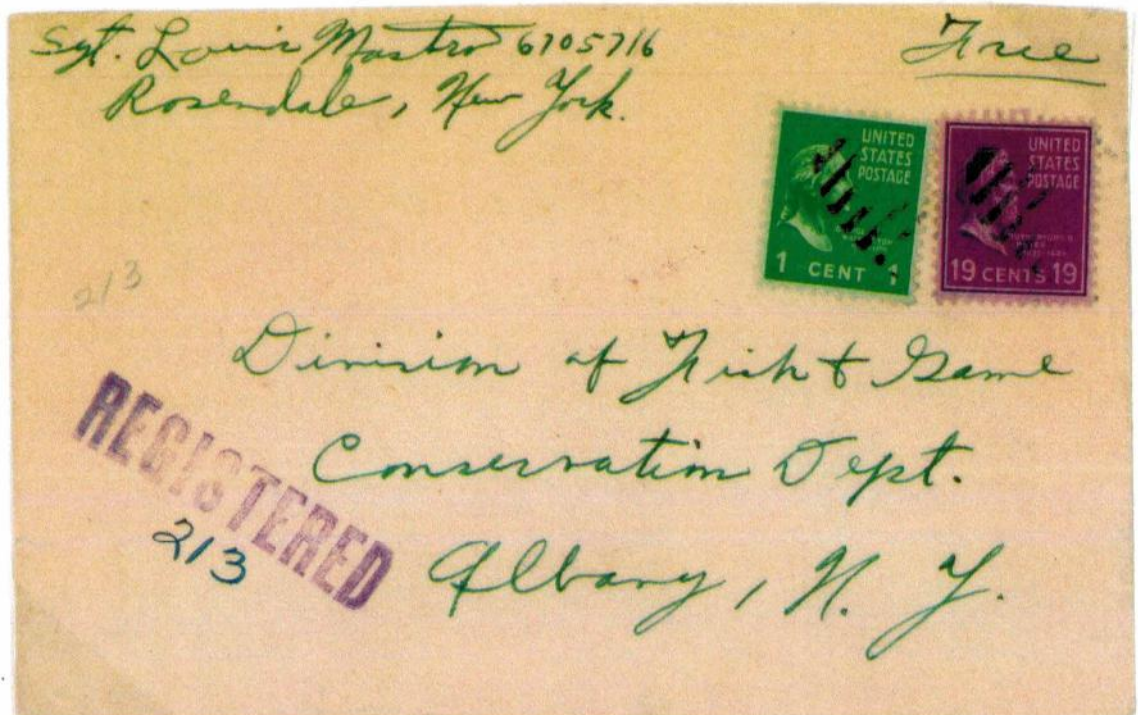 Sgt. Louis Mastro 6705716
Rosendale, New York.
Free
UNITED
STATES
POSTAGE
1 CENT 1
UNITED
STATES
POSTAGE
19 CENTS 19
213
Division of Fish & Game
Conservation Dept.
Albany, N. Y.
REGISTERED
213